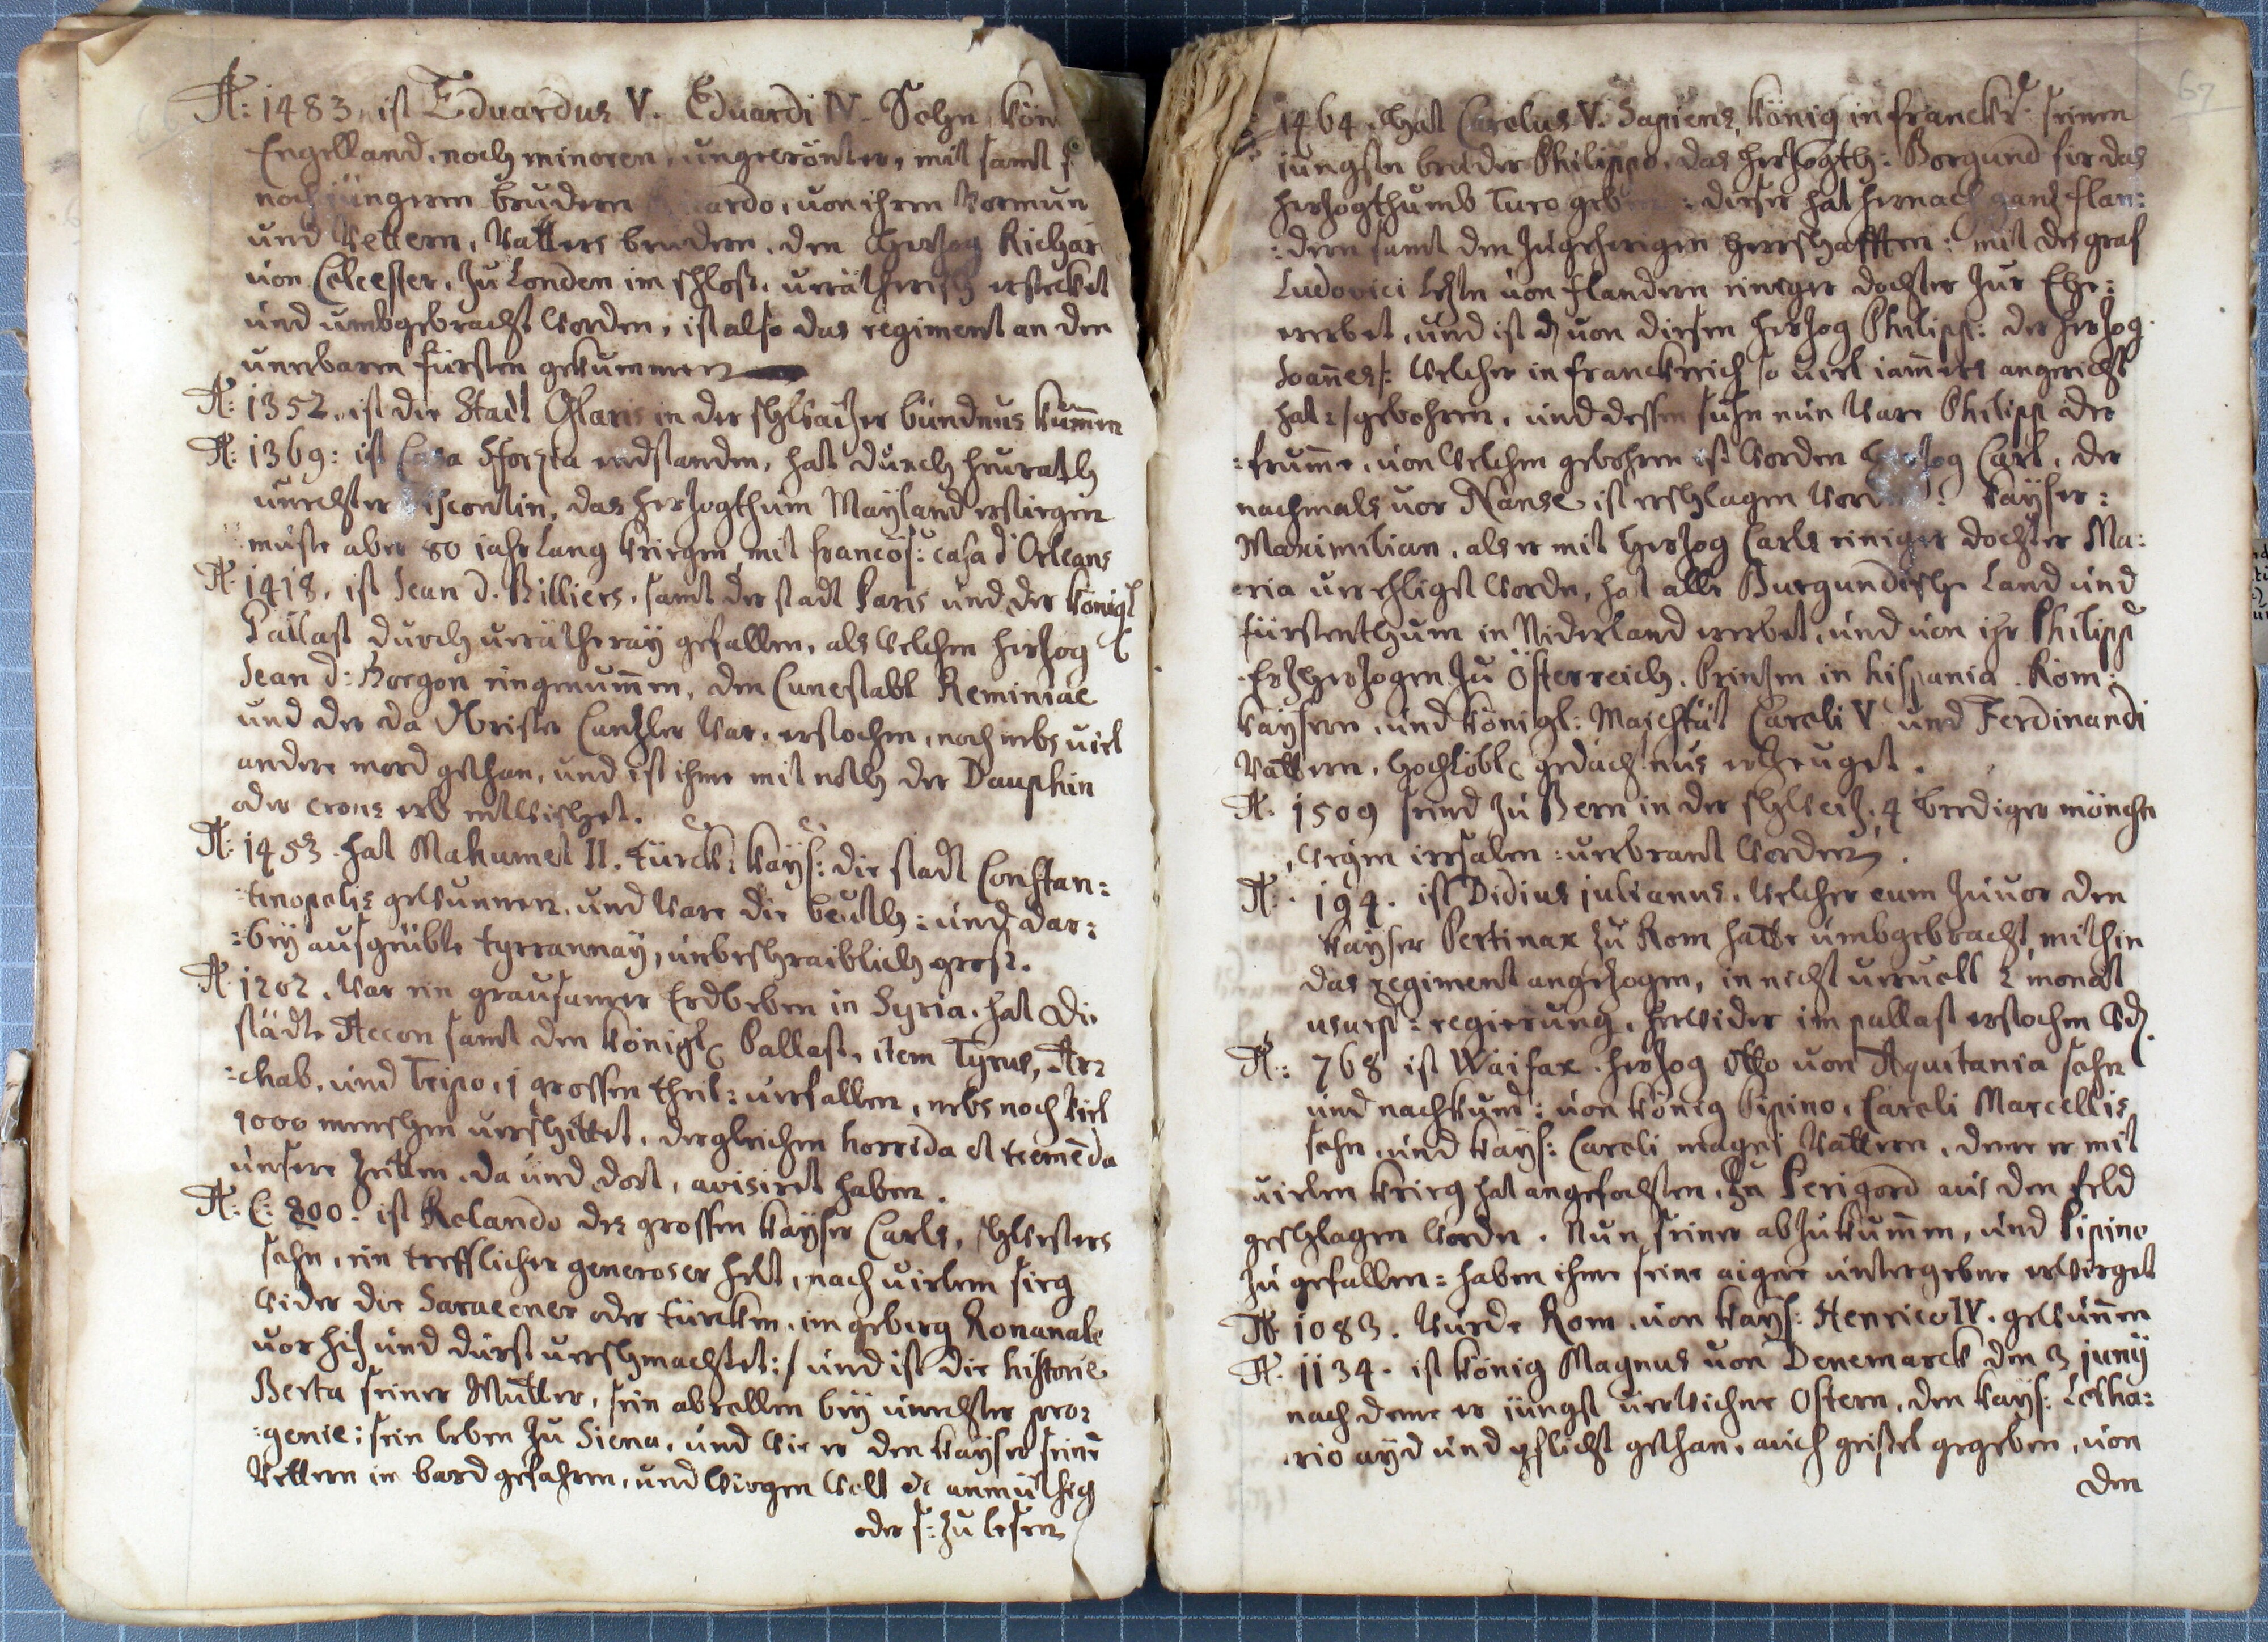 A: 1483, ist Eduardus V. Eduardi IV. Sohn, Kön
Engelland, noch minoren, ungecrönter, mit samt s
noch jüngeren brudern ardo, von ihren Vormun
und Vettern, Vatters brudern, den Herzog Richar
von Clocester, zu Londen im schloß, verätherisch erstecket
und umbgebracht worden, ist also das regiment an den
unerbaren fürsten gekummen
A: 1352, ist die Stadt Glaris in der schweizer bündnus kumen
A: 1369: ist Casa Sforzia endstanden, hat durch heurath
unechter iscontin, das herzogthum Mayland erstiegen
muste aber 80 jahr lang kriegen mit francös: casa d'Orleans
A: 1418, ist Jean d. Billiers, samt der stadt Paris und der königl
Pallast durch veräthereÿ gefallen, als welchen herzog
Jean d: Borgon eingenumen, den Cunestabl Reminiac
und der da Obrister Canzler war, erstochen, noch nebs viel
andere mord gethan, und ist ihme mit noth der Dauphin
oder crons erb entwischet.
A: 1453. hat Mahumet II. türck: kaÿs: die stadt Constan:
:tinopolis gewunnen, und ware die beuth: und dar:
:beÿ ausgeübte tyrrannaÿ, unbeschraiblich gross.
A: 1202. war ein grausamer Erdbeben in Syria. hat die
städte Accon samt den königl: Pallast, item Tyrus, Ar:
:chab, und Tripo, j grossen theil: verfallen, nebs noch viel
1000 menschen verschittet, dergleichen horrida et tremēda
unsere zeitten, da und dort, avisiret haben.
A: C: 800: ist Rolando des grossen kaÿser Carls, schwesters
sohn, ein trefflicher generoser helt, nach vielem sieg
wider die Saracener oder türcken, im geberg Ronanale
vor hiz und durst verschmachtet:/ und ist die historie
Berta seiner Mutter, sein abeellen beÿ unechter pro:
:genie: sein leben zu Siena, und wie er den kaÿser seinē
Vettern in bard gefahren, und wiegen wolt etc anmüthig
oder s: zu lesen
67
1464. hat Carolus V. Sapiens, König in franckr: seinem
jüngsten bruder Philippo, das herzogth: Borgund fir das
herzogthumb Turo geben : dieser hat hernach ganz flan:
:dern samt den zugeherigen herrschafften: mit des graf
Ludovici lezten von flandern einziger dochter zur Ehe:
ererbet, und ist von diesen herzog Philipp: der herzog
Joañes/: welcher in franckreich so viel jamers angericht
hat:/ gebohren, und dessen sohn nun ware Philipp oder
:frume, von welchen gebohren ist worden herzog Carl, der
nachmals vor Nanse ist erschlagen word : kaÿser:
Maximilian, als er mit herzog Carls einiger dochter Ma:
:ria verehliget worde, hat alle Burgundische land und
fürstenthum in Niderland ererbet, und von ihr Philipp
Erzherzogen zu Österreich, Prinzen in hispania. Röm:
kaÿsern und königl: Majestät Caroli V und Ferdinandi
Vattern, hochlöbl: gedächtnus erzeuget.
A: 1509 seind zu Bern in der schweiz, 4 brediger mönche
wegen irrsalen: verbrant worden.
A: 194. ist Didius julianus, welcher eum zuvor den
kaÿser Pertinax zu Rom hatte umbgebracht, mithin
das regiment angezogen, in nicht vervolt 2 monat
usurp: regierung, herwider im pallast erstochen wd.
A: 768 ist Waifax. herzog Otto von Aquitania sohn
und nachkumd: von könig Pipino, Caroli Marcellis
sohn, und kaÿs: Caroli magni Vattern, deme er mit
vielen krieg hat angefochten, zu Perigord aus den feld
geschlagen worde. Nun seiner abzukumen, und Pipino
zu gefallen: haben ihme seine aigene untergebene erwirget
A: 1083. wurde Rom, von kaÿs: Henrico IV. gewunen
A: 1134. ist könig Magnus von Denemarck den 3 junÿ
nach deme er jüngst verwichne Ostern, den kaÿs: Lotha:
:rio aÿd und pflicht gethan, auch geisel gegeben, von
den